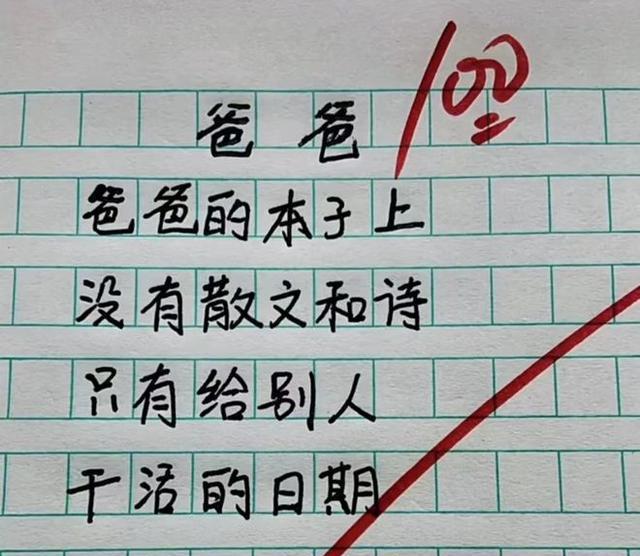 爸爸 100
爸爸的本子上
没有散文和诗
只有给别人
干活的日期